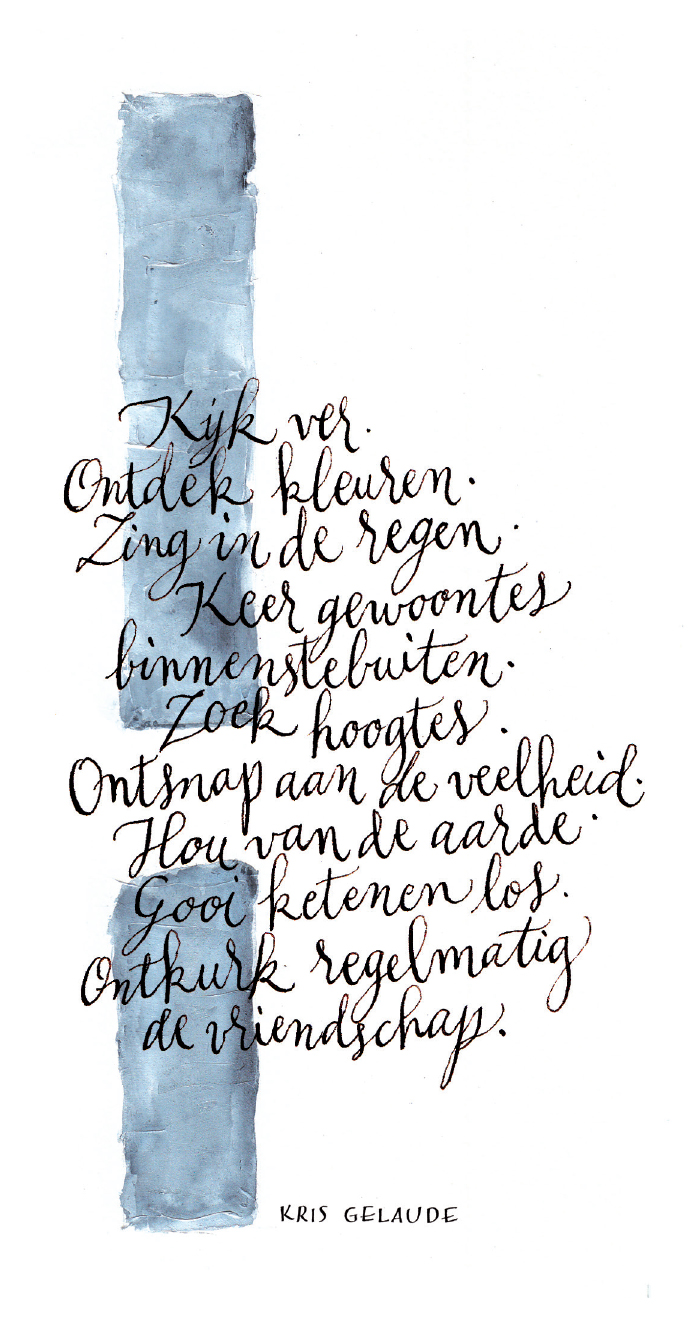 Kijk ver.
Ontdek kleuren.
Zing in de regen.
Keer gewoontes
binnenstebuiten.
Zoek hoogtes.
Ontsnap aan de veelheid.
Hou van de aarde.
Gooi ketenen los.
Ontkurk regelmatig
de vriendschap.
KRIS GELAUDE